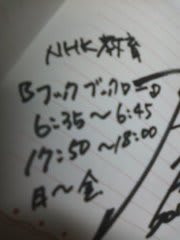 NHK 教育
Bフックブックロード
6:35〜6:45
17:50〜18:00
月〜金